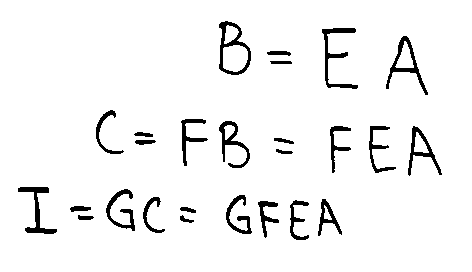 B = EA
C = FB = FEA
I = GC = GFEA